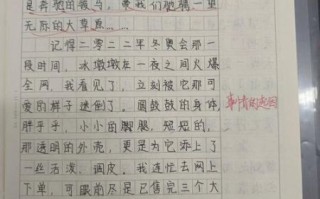 是奔驰的骏马，象我们驰骋一望
无际的大草原……
记得二〇二二年冬奥会那一
段时间，冰墩墩在一夜之间火爆
全网，我看见了，立刻被它那可
爱的样子迷倒了。圆鼓鼓的身体
胖乎乎，小小的腿腿，短短的，
那透明的外壳，更是为它添上了
一些活泼、调皮。我连忙去网上
下单，可眼前尽是已售完三个大
事情的起因